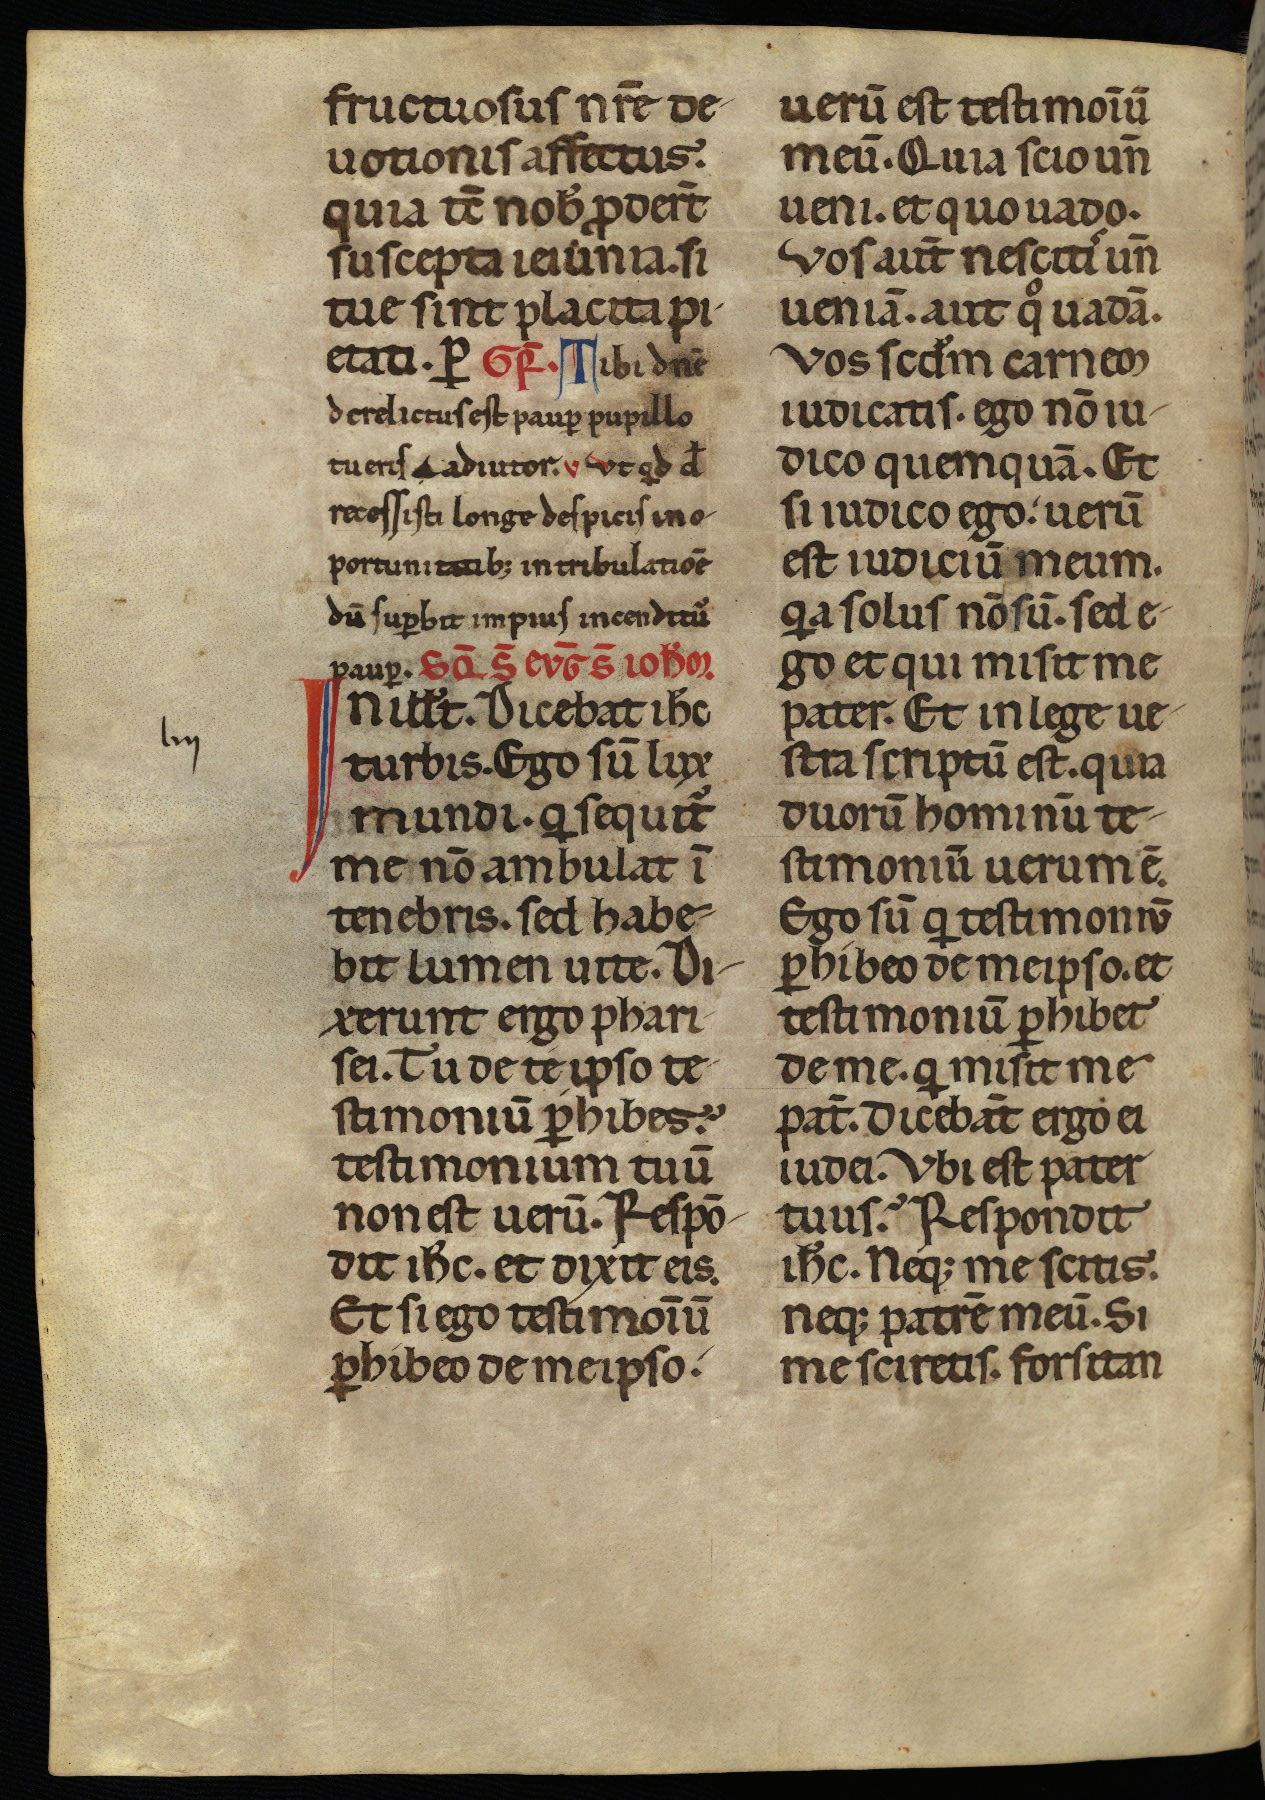 fructuosus nr̄e de-
uotionis affectus.
quia tc̄ nob̄ ꝓdert̄
suscepta ieiunia. si
tue sint placita pi-
etati. ꝑ Gr̄. Tibi dn̄e
derelictus est paup̲ pupillo
tu eris adiutor. v Vt qd d̄
recessisti longe despicis in o-
portunitatib; in tribulatiōe
dū sup̲bit impius incenditur̄
paup̲. Sq̄. s̄ evḡ s̄ ioh̄m.
lvij
In illt̄. Dicebat ih̄c
turbis. Ego sū lux
mundi. q sequit̄
me nō ambulat ī
tenebris. sed habe-
bit lumen uite. Di-
xerunt ergo phari-
sei. Tu de te ipso te-
stimoniū ꝑhibes.
testimonium tuū
non est uerū. Respō-
dit ih̄c. et dixit eis.
Et si ego testimoīū
ꝑhibeo de me ipso.
uerū est testimoīū
meū. Quia scio un̄
ueni. et quo uado.
Vos aut̄ nesciti un̄
ueniā. aut qͦ uadā.
Vos scd̄m carnem
iudicatis. ego nō iu-
dico quemquā. Et
si iudico ego. uerū
est iudiciū meum.
qa solus nō sū. sed e-
go et qui misit me
pater. Et in lege ue-
stra scriptū est. quia
duorū hominū te-
stimoniū uerum ē.
Ego sū q testimoniū
ꝑhibeo de me ipso. et
testimoniū ꝑhibet
de me. q misit me
pat̄. Dicebāt ergo ei
iudei. Vbi est pater
tuus. Respondit
ih̄c. Neq; me scitis.
neq; patrē meū. Si
me sciretis. forsitan